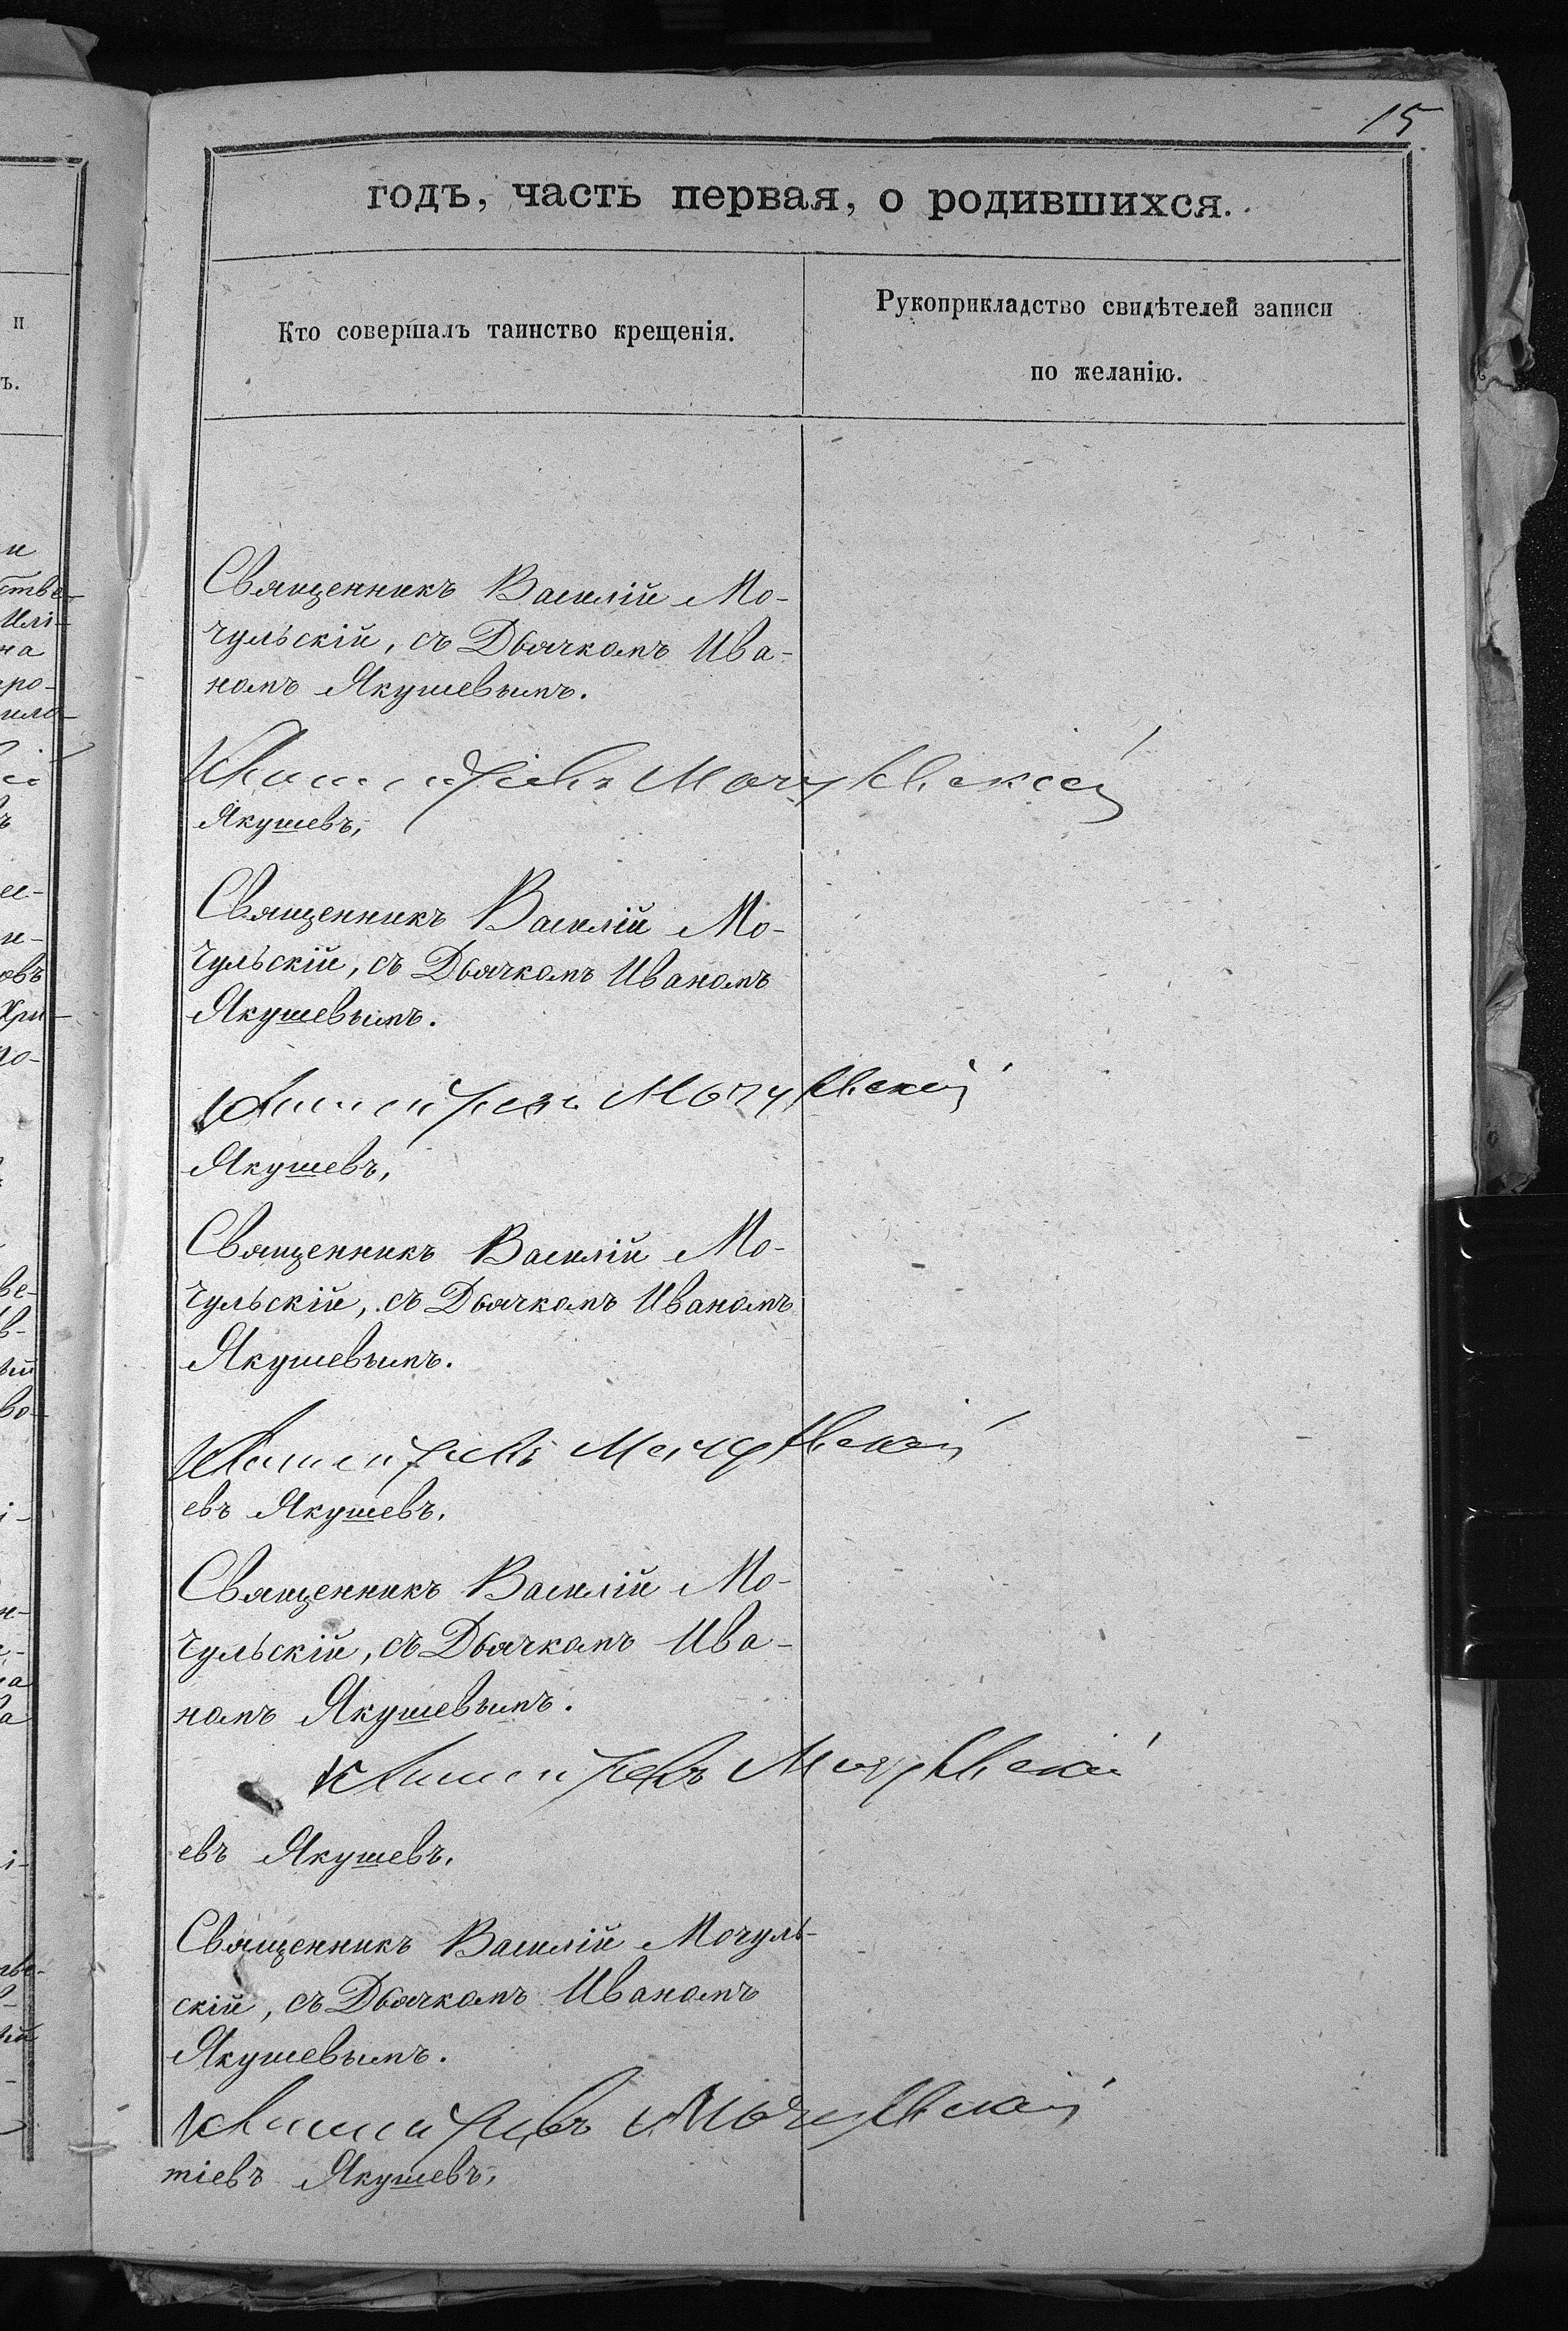 15
годъ, часть первая, о родившихся.
Кто совершалъ таинство крещенія.
Рукоприкладство свидѣтелей записи
по желанію.
Священникъ Василій Мо-
чульскій, съ Дьячкомъ Ива-
номъ Якушевымъ.
Мочульскій
Якушевъ,
Священникъ Василій Мо-
чульскій, съ Дьячкомъ Иваномъ
Якушевымъ.
Мочульскій
Якушевъ,
Священникъ Василій Мо-
чульскій, съ Дьячкомъ Иваномъ
Якушевымъ.
Мочульскій
евъ Якушевъ,
Священникъ Василій Мо-
чульскій, съ Дьячкомъ Ива-
номъ Якушевымъ.
Мочульскій
евъ Якушевъ,
Священникъ Василій Мочуль-
скій, съ Дьячкомъ Иваномъ
Якушевымъ.
Мочульскій
тіевъ Якушевъ,